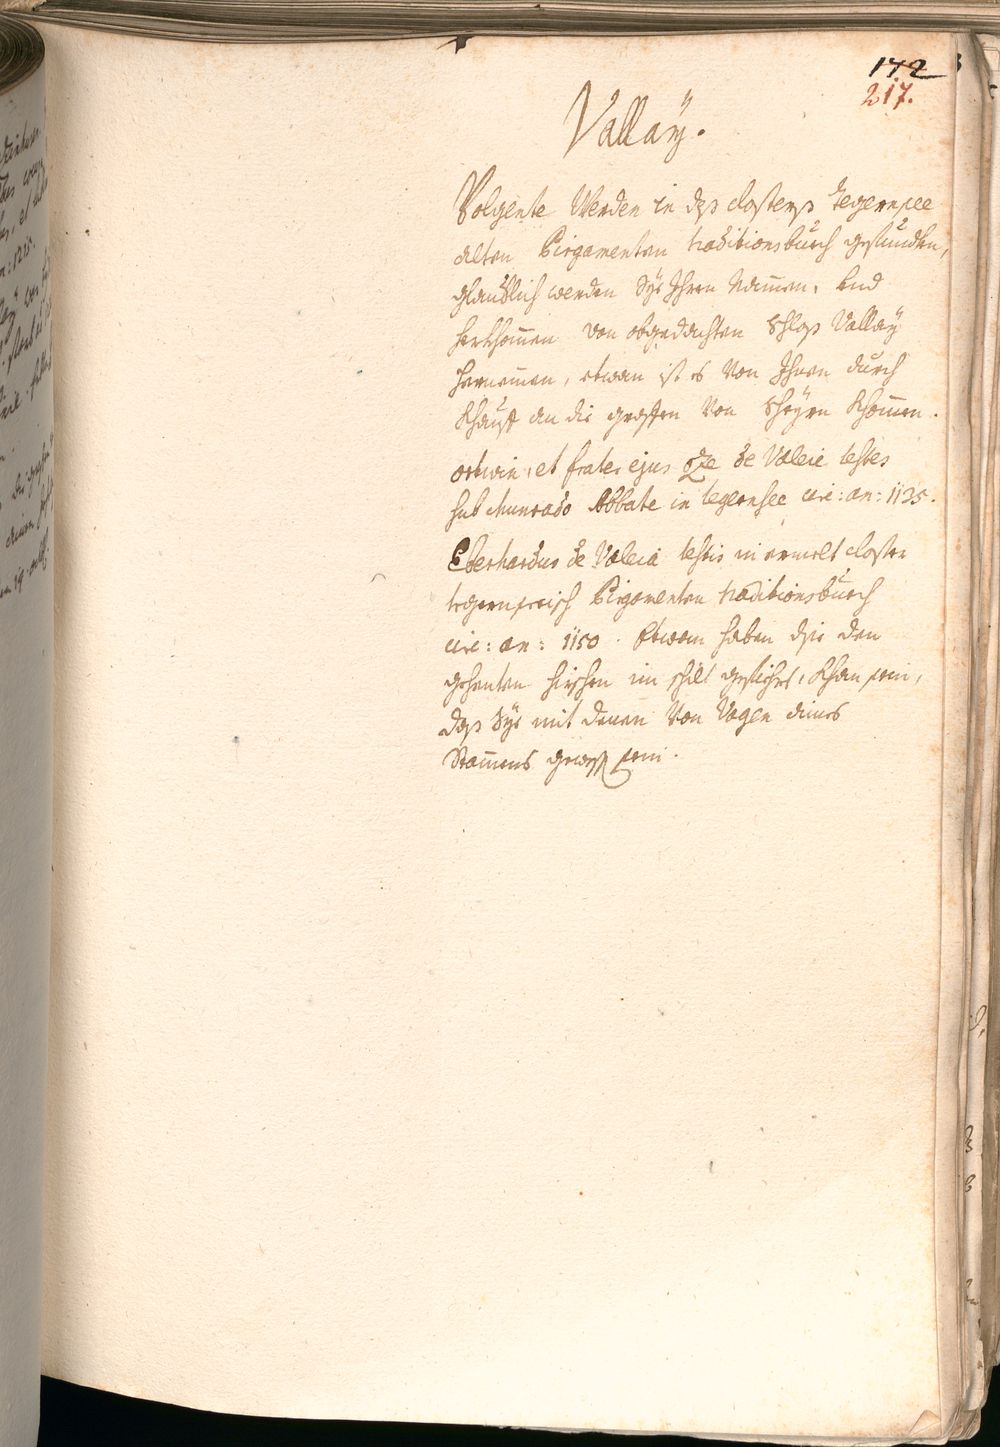 172
217.
Vallaÿ.
Volgente Werden in deß closters Tegernsee
alten Pirgamenten traditionsbuech gefunden,
glaublich werden Sye Ihren Namen, und
herkhomen von obgedachten Schloß Vallaÿ
hernemen, etwan ist es von Ihnen durch
Khauff an die grafen von Scheyrn khomen.
ortwin, et frater ejus de Valeie testes
sub Chunrado Abbate in tegernsee circ: an: 1125.
Eberhardus de Valeia testis in ermelt closter
tegernseeisch Pirgamenten traditionsbuech
circ: an: 1150. Etwan haben dise den
gehenten hirschen im schilt gefiehrt, khan sein,
daß Sye mit denen von Vagen eines
Stamens gewest sein.